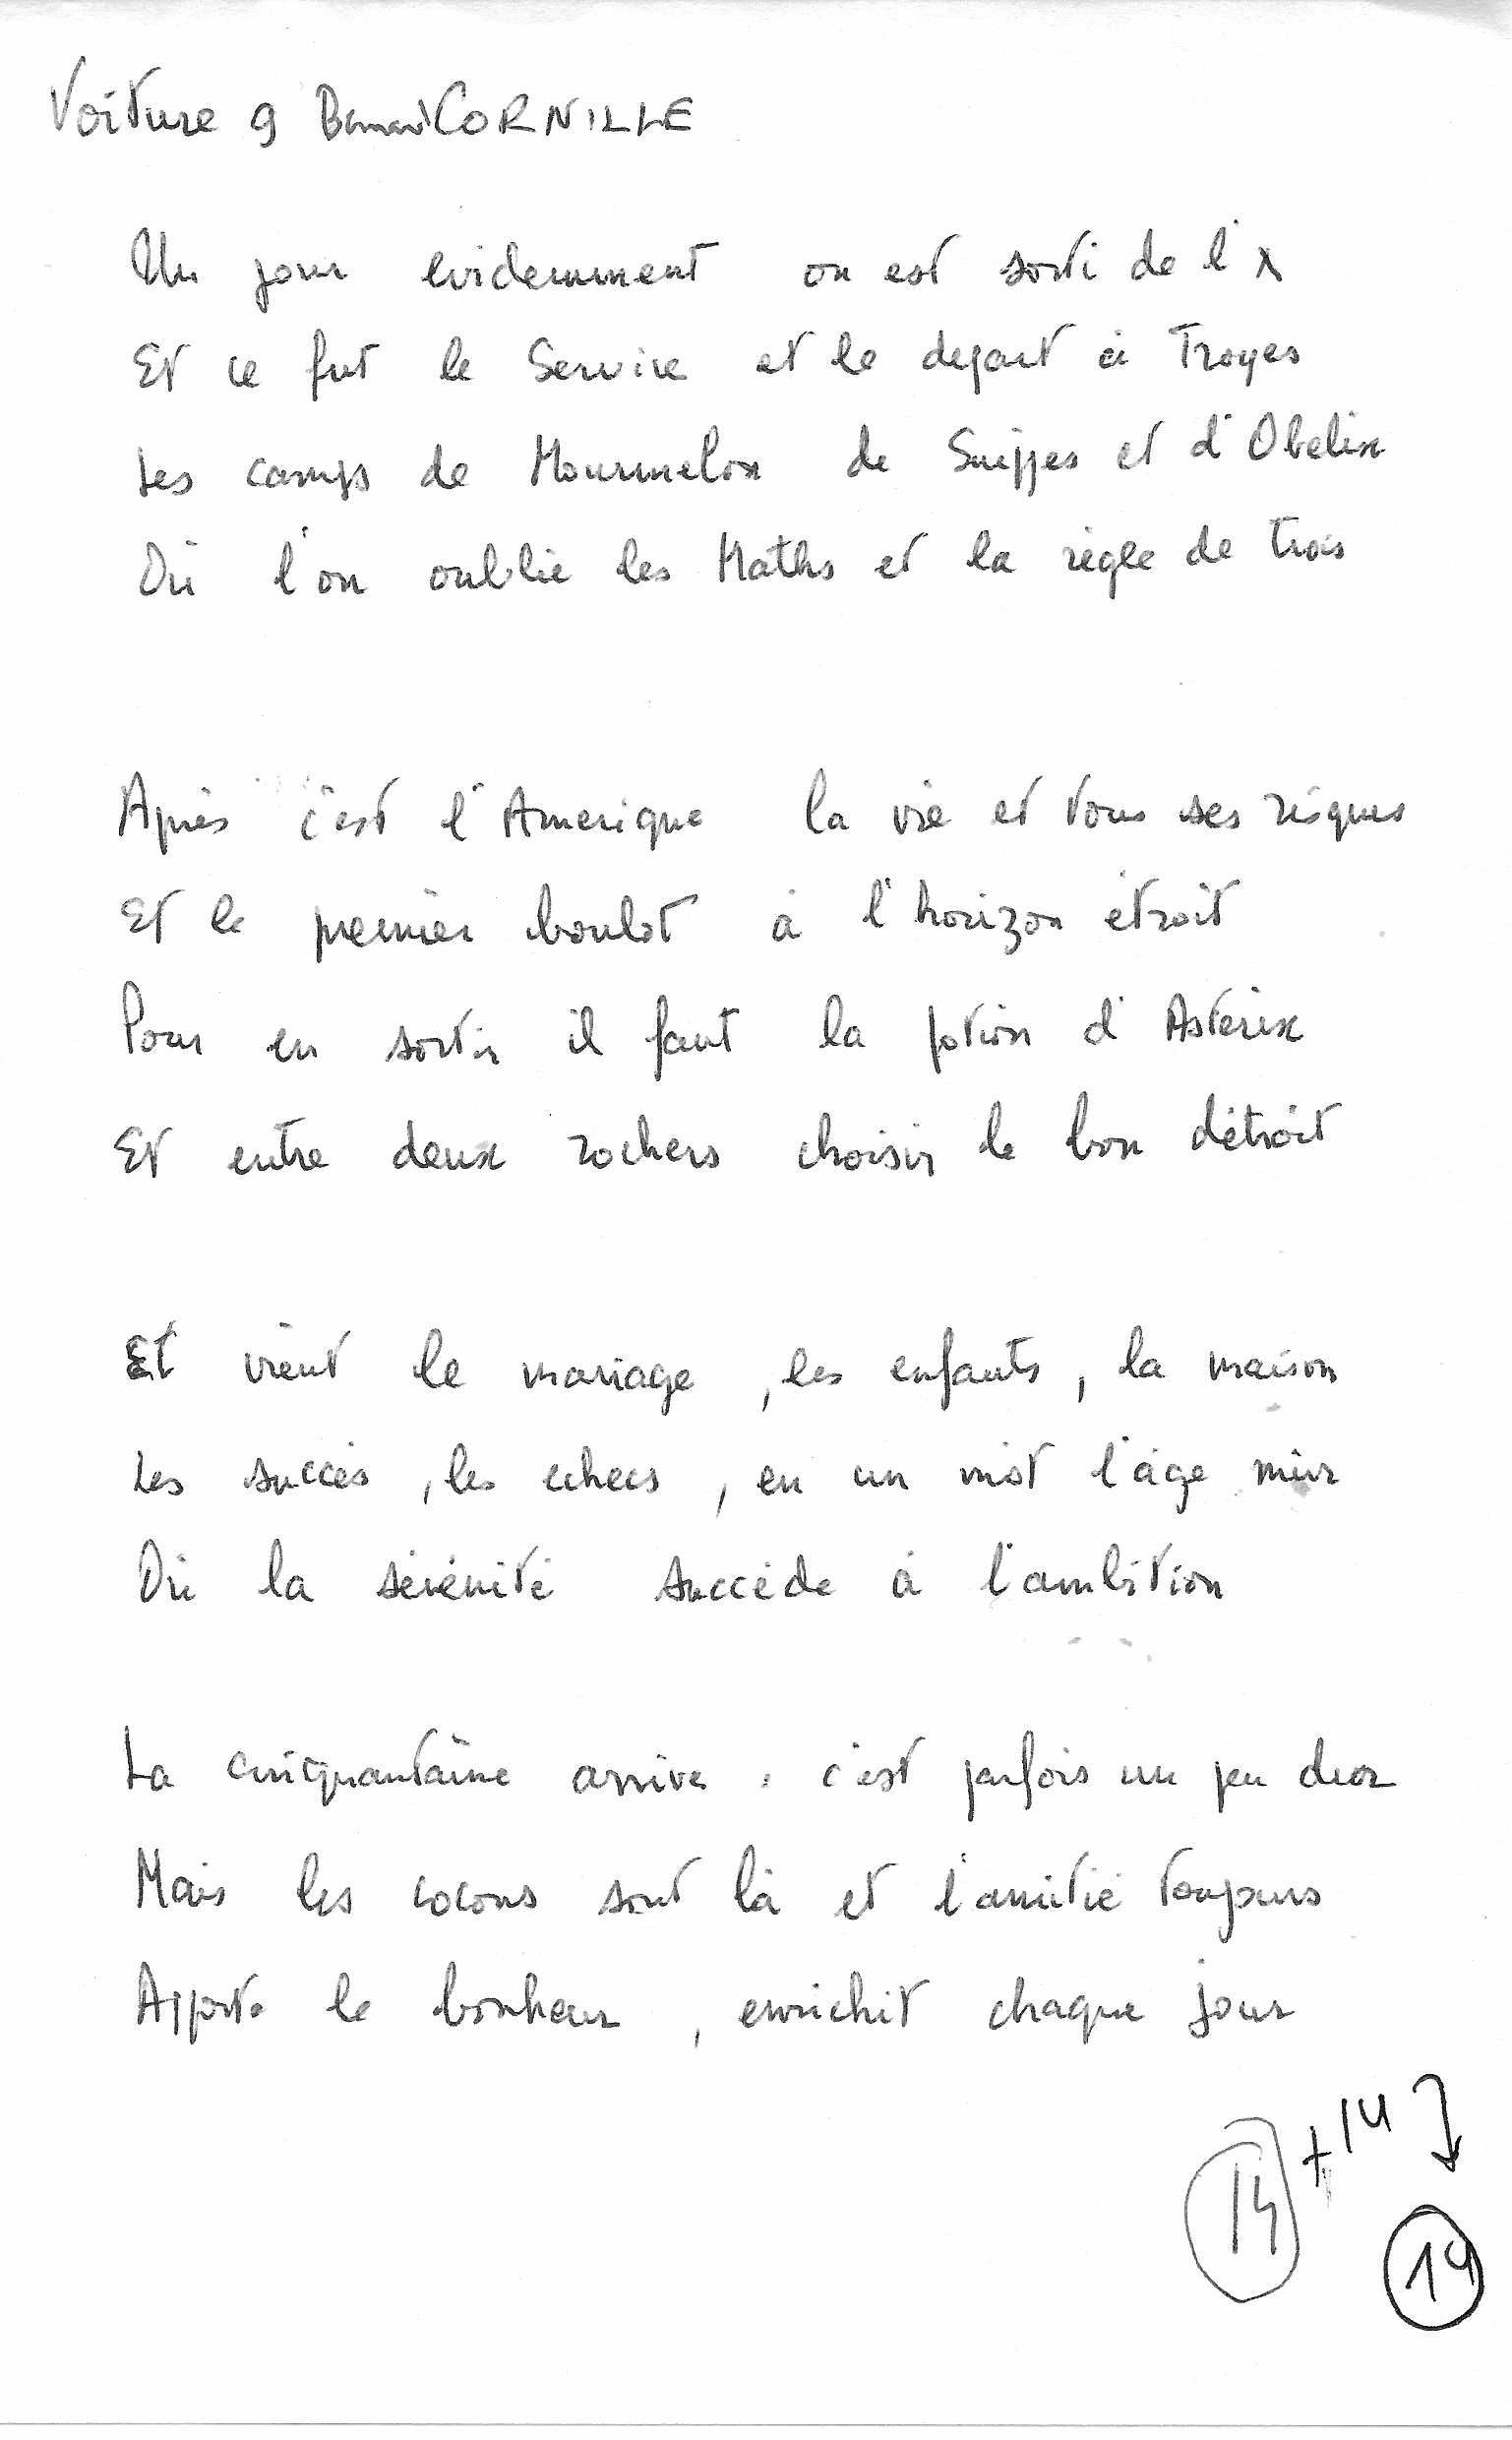 Voiture 9 Bernard CORNILLE
Un jour evidemment on est sorti de l'X
Et ce fut le Service et le depart à Troyes
Les camps de Mourmelon de Suippes et d'Obelix
Où l'on oublie les Maths et la règle de trois
Après c'est l'Amerique la vie et tous ses risques
Et le premier boulot à l'horizon étroit
Pour en sortir il faut la potion d'Astérix
Et entre deux rochers choisir le bon détroit
Et vient le mariage , les enfants , la maison
Les succès , les echecs , en un mot l'âge mûr
Où la sérénité succède à l'ambition
La cinquantaine arrive , c'est parfois un peu dur
Mais les cocons sont là et l'amitié toujours
Apporte le bonheur , enrichit chaque jour
14 +14
14